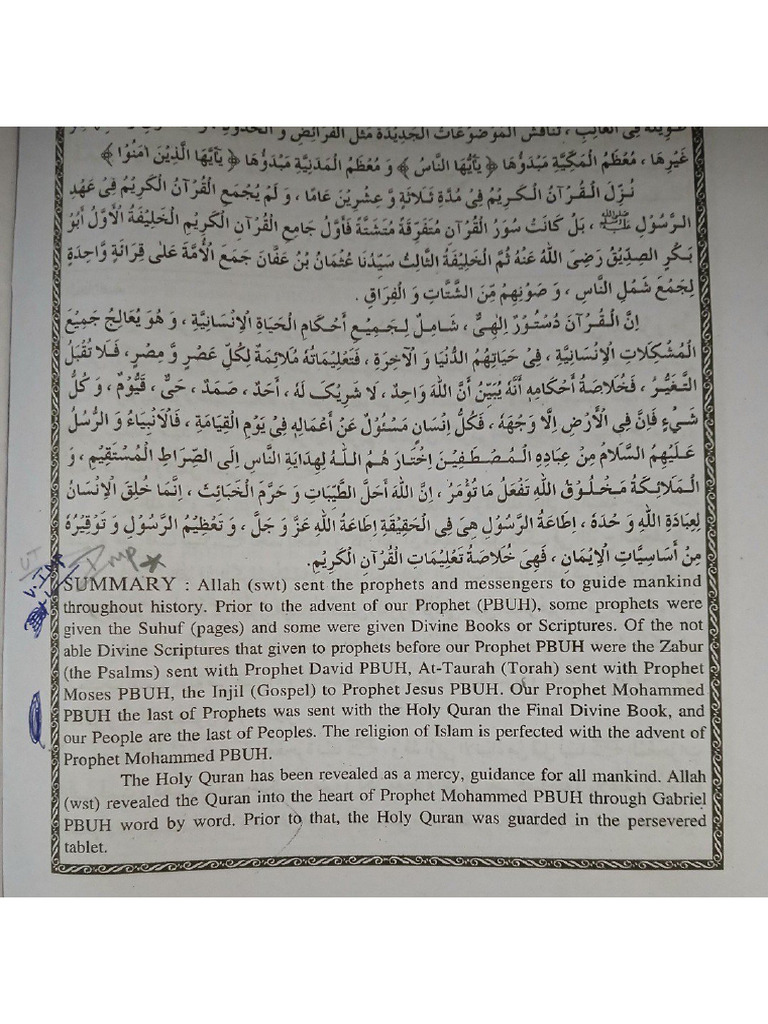 طَوِيْلَةٌ فِى الْغَالِبِ ، تُنَاقِشُ الْمَوْضُوْعَاتِ الْجَدِيْدَةَ مِثْلَ الْفَرَائِضِ وَ الْحُدُوْدِ ،
غَيْرِهَا ، مُعْظَمُ الْمَكِّيَّةِ مَبْدَؤُهَا ﴿ يٰٓاَيُّهَا النَّاسُ ﴾ وَ مُعْظَمُ الْمَدَنِيَّةِ مَبْدَؤُهَا ﴿ يٰٓاَيُّهَا الَّذِيْنَ اٰمَنُوْا ﴾
نُزِّلَ الْقُرْآنُ الْكَرِيْمُ فِىْ مُدَّةِ ثَلَاثَةٍ وَّ عِشْرِيْنَ عَامًا ، وَ لَمْ يُجْمَعِ الْقُرْآنُ الْكَرِيْمُ فِىْ عَهْدِ
الرَّسُوْلِ ﷺ ، بَلْ كَانَتْ سُوَرُ الْقُرْآنِ مُتَفَرِّقَةً مُتَشَتَّةً فَأَوَّلُ جَامِعِ الْقُرْآنِ الْكَرِيْمِ الْخَلِيْفَةُ الْأَوَّلُ أَبُوْ
بَكْرٍ الصِّدِّيْقُ رَضِىَ اللهُ عَنْهُ ثُمَّ الْخَلِيْفَةُ الثَّالِثُ سَيِّدُنَا عُثْمَانُ بْنُ عَفَّانَ جَمَعَ الْأُمَّةَ عَلٰى قِرَائَةٍ وَّاحِدَةٍ
لِجَمْعِ شَمْلِ النَّاسِ ، وَ صَوْنِهِمْ مِّنَ الشَّتَاتِ وَ الْفِرَاقِ .
إِنَّ الْقُرْآنَ دُسْتُوْرٌ اِلٰهِىٌّ ، شَامِلٌ لِجَمِيْعِ أَحْكَامِ الْحَيَاةِ الْاِنْسَانِيَّةِ ، وَ هُوَ يُعَالِجُ جَمِيْعَ
الْمُشْكِلَاتِ الْاِنْسَانِيَّةِ ، فِىْ حَيَاتِهِمُ الدُّنْيَا وَ الْآخِرَةِ ، فَتَعْلِيْمَاتُهٗ مُلَائِمَةٌ لِكُلِّ عَصْرٍ وَّ مِصْرٍ، فَلَا تُقْبَلُ
التَّغَيُّرُ ، فَخُلَاصَةُ أَحْكَامِهٖ أَنَّهٗ يُبَيِّنُ أَنَّ اللهَ وَاحِدٌ ، لَا شَرِيْكَ لَهٗ ، أَحَدٌ ، صَمَدٌ ، حَىٌّ ، قَيُّوْمٌ ، وَ كُلُّ
شَىْءٍ فَانٍ فِى الْأَرْضِ اِلَّا وَجْهَهٗ ، فَكُلُّ اِنْسَانٍ مَسْئُوْلٌ عَنْ أَعْمَالِهٖ فِىْ يَوْمِ الْقِيَامَةِ ، فَالْاَنْبِيَاءُ وَ الرُّسُلُ
عَلَيْهِمُ السَّلَامُ مِنْ عِبَادِهِ الْمُصْطَفَيْنَ اِخْتَارَ هُمُ اللهُ لِهِدَايَةِ النَّاسِ اِلَى الصِّرَاطِ الْمُسْتَقِيْمِ ، وَ
الْمَلَائِكَةُ مَخْلُوْقُ اللهِ تَفْعَلُ مَا تُؤْمَرُ ، اِنَّ اللهَ أَحَلَّ الطَّيِّبَاتِ وَ حَرَّمَ الْخَبَائِثَ ، اِنَّمَا خُلِقَ الْاِنْسَانُ
لِعِبَادَةِ اللهِ وَ حْدَهٗ ، اِطَاعَةُ الرَّسُوْلِ هِىَ فِى الْحَقِيْقَةِ اِطَاعَةُ اللهِ عَزَّ وَ جَلَّ ، وَ تَعْظِيْمُ الرَّسُوْلِ وَ تَوْقِيْرُهٗ
مِنْ أَسَاسِيَّاتِ الْاِيْمَانِ ، فَهِىَ خُلَاصَةُ تَعْلِيْمَاتِ الْقُرْآنِ الْكَرِيْمِ.
V. Imp
Imp
SUMMARY : Allah (swt) sent the prophets and messengers to guide mankind
throughout history. Prior to the advent of our Prophet (PBUH), some prophets were
given the Suhuf (pages) and some were given Divine Books or Scriptures. Of the not
able Divine Scriptures that given to prophets before our Prophet PBUH were the Zabur
(the Psalms) sent with Prophet David PBUH, At-Taurah (Torah) sent with Prophet
Moses PBUH, the Injil (Gospel) to Prophet Jesus PBUH. Our Prophet Mohammed
PBUH the last of Prophets was sent with the Holy Quran the Final Divine Book, and
our People are the last of Peoples. The religion of Islam is perfected with the advent of
Prophet Mohammed PBUH.
The Holy Quran has been revealed as a mercy, guidance for all mankind. Allah
(wst) revealed the Quran into the heart of Prophet Mohammed PBUH through Gabriel
PBUH word by word. Prior to that, the Holy Quran was guarded in the persevered
tablet.